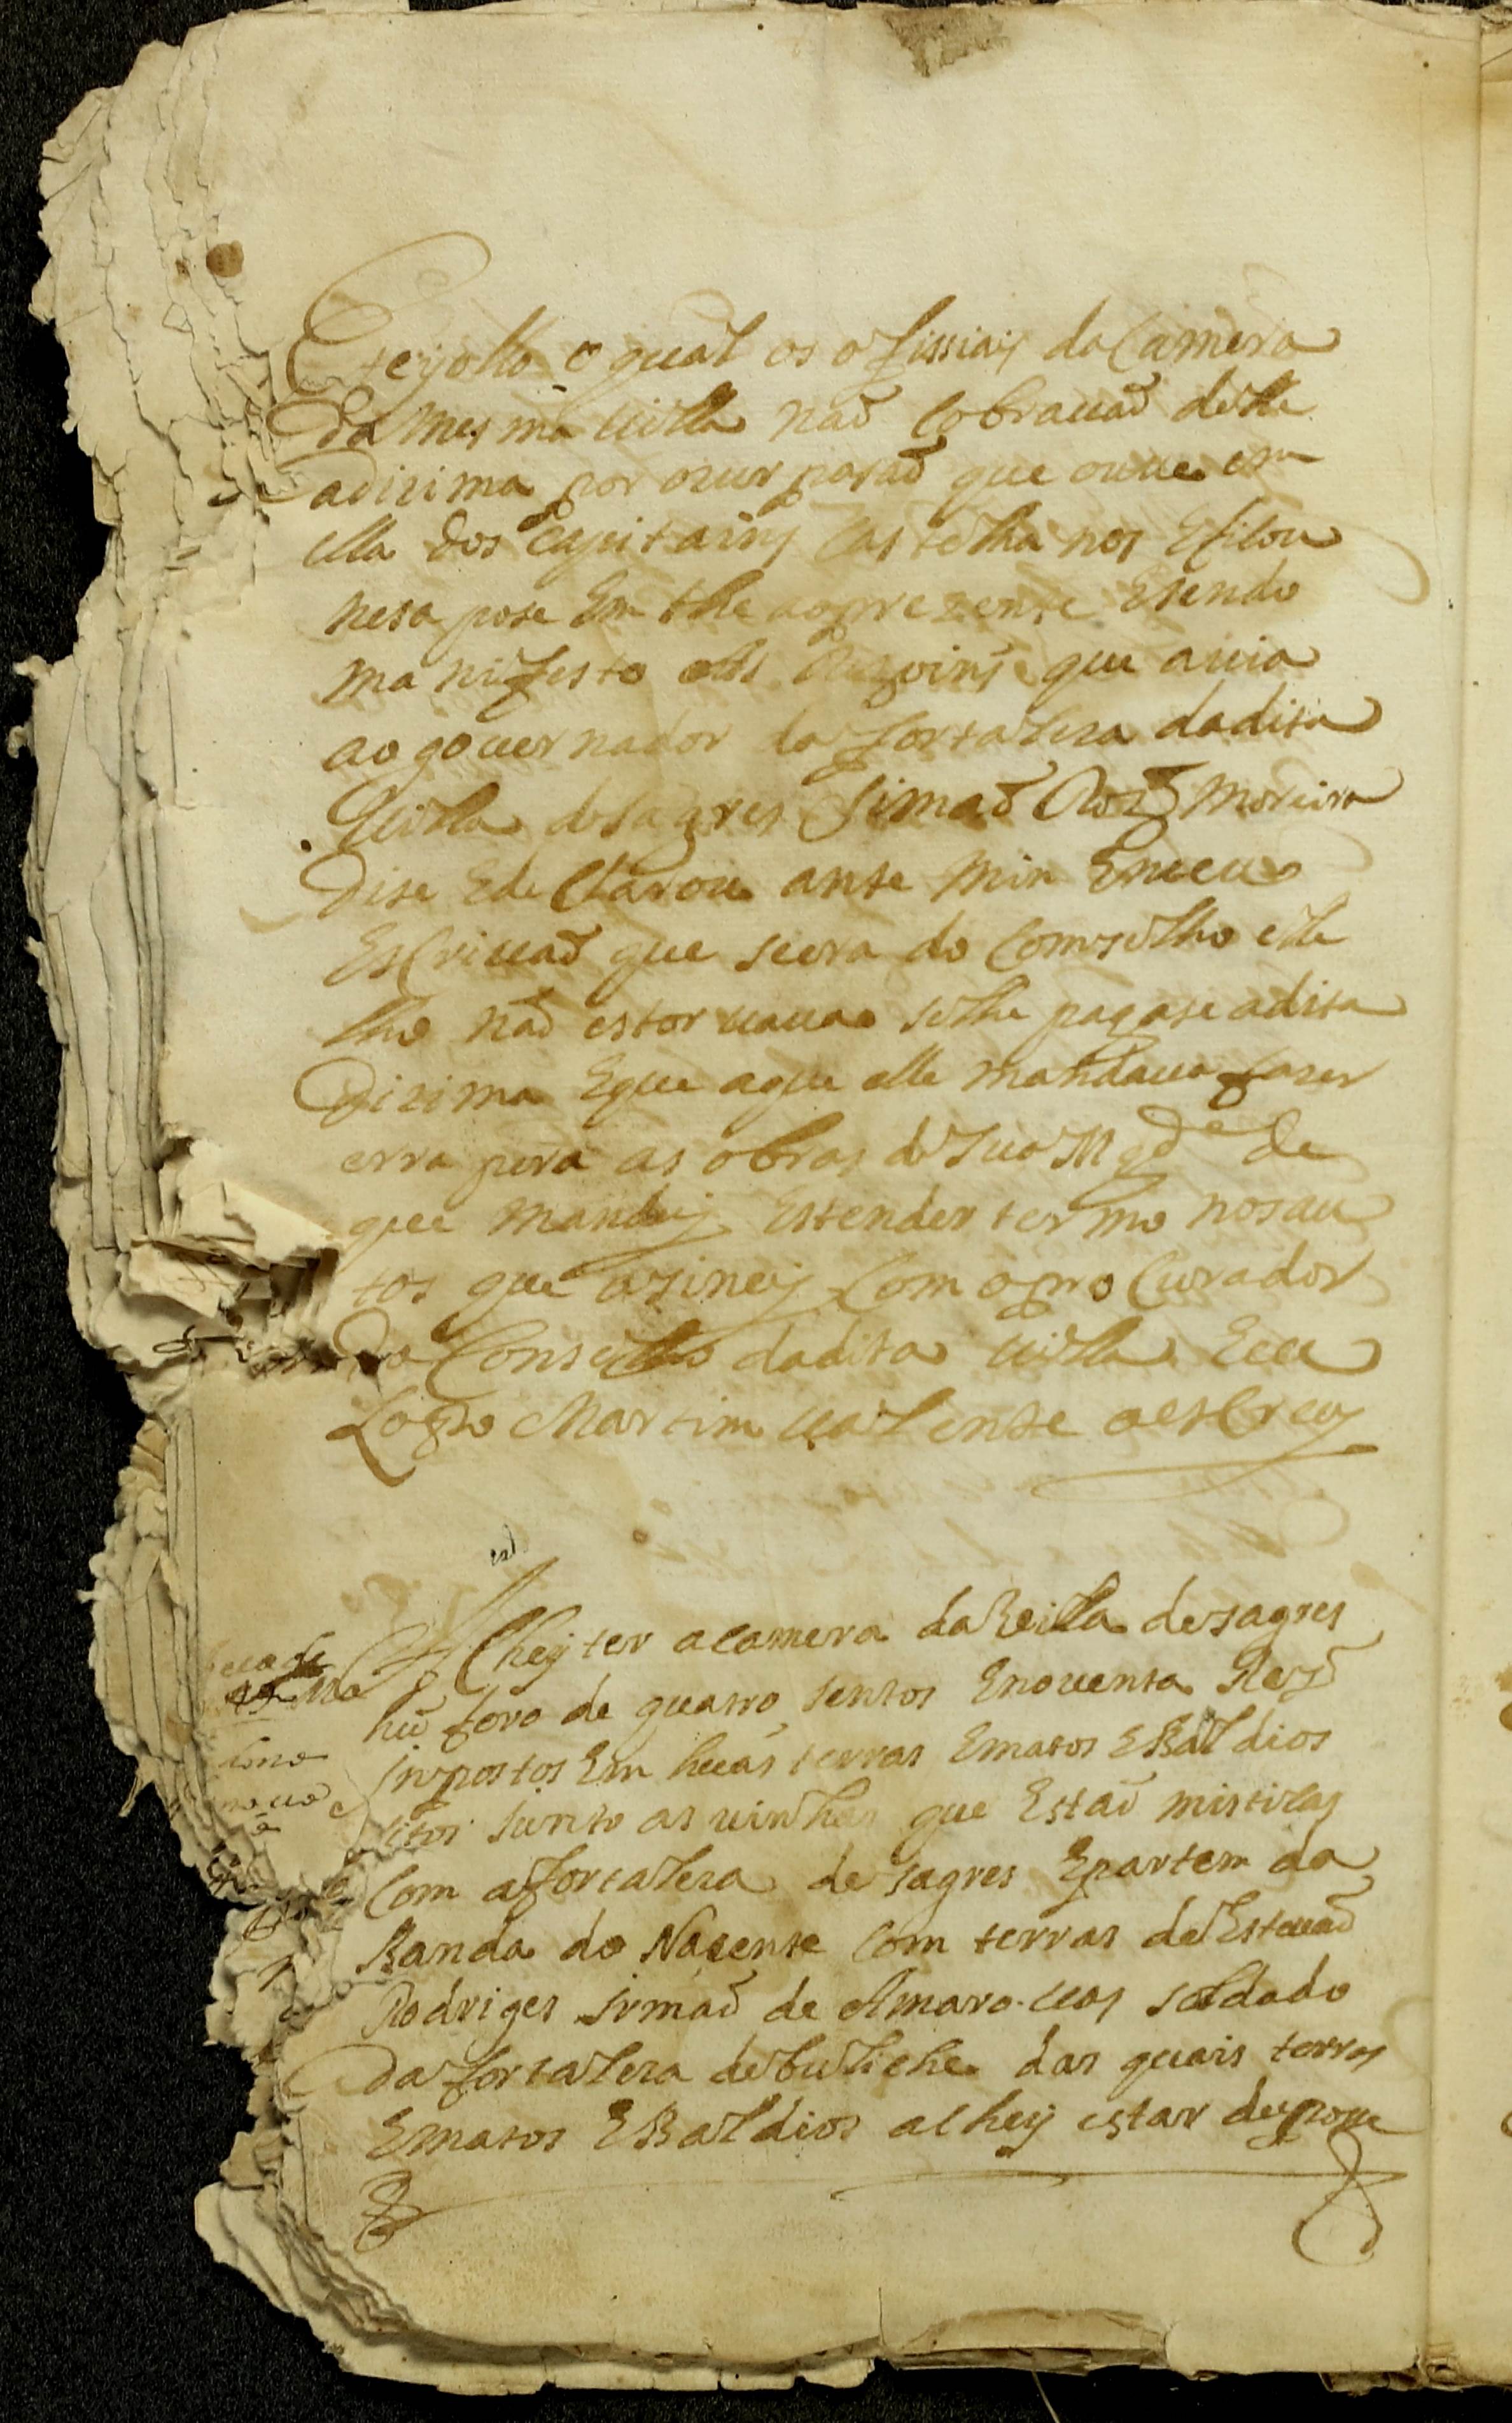 E teyollo o qual osofissiais da Camera
da mesma villa naõ Cobrauaõ delle
adizima por ozurpasaõ que ouue em
ella dos Capitains Castelhanos E ficou
nesa pose Em the ao prezente E sendo
manifesto que auia
ao gouernador da fortaleza dadita
Villa de sagres Simaõ Roiz Moreira
Dise E de Clarou ante min E meu
EsCriuaõ que seera do Comselho elle
lho naõ estoruaua selhe pagase adita
Dizima E que a que elle mandaua fazer
erra pera as obras de Sua Mgde de
que mandej Estender termo nos au
tos que asinej Com o pro Curador
do Conselho dadita villa E eu
Lopo Martim valente o esCreuj
Achey ter a camera da Villa de sagres
hũ foro de quatro sentos E nouenta Reis
inpostos Em huas terras E matos E Baldios
sitos Junto as vinhas que Estaõ misticas
Com a fortaleza de sagres E partem da
Banda do Nacente Com terras de Esteuaõ
Rodriges irmaõ de Amaro vas soldado
da fortaleza de buliche das quais terras
E matos E Baldios achey estar de posse